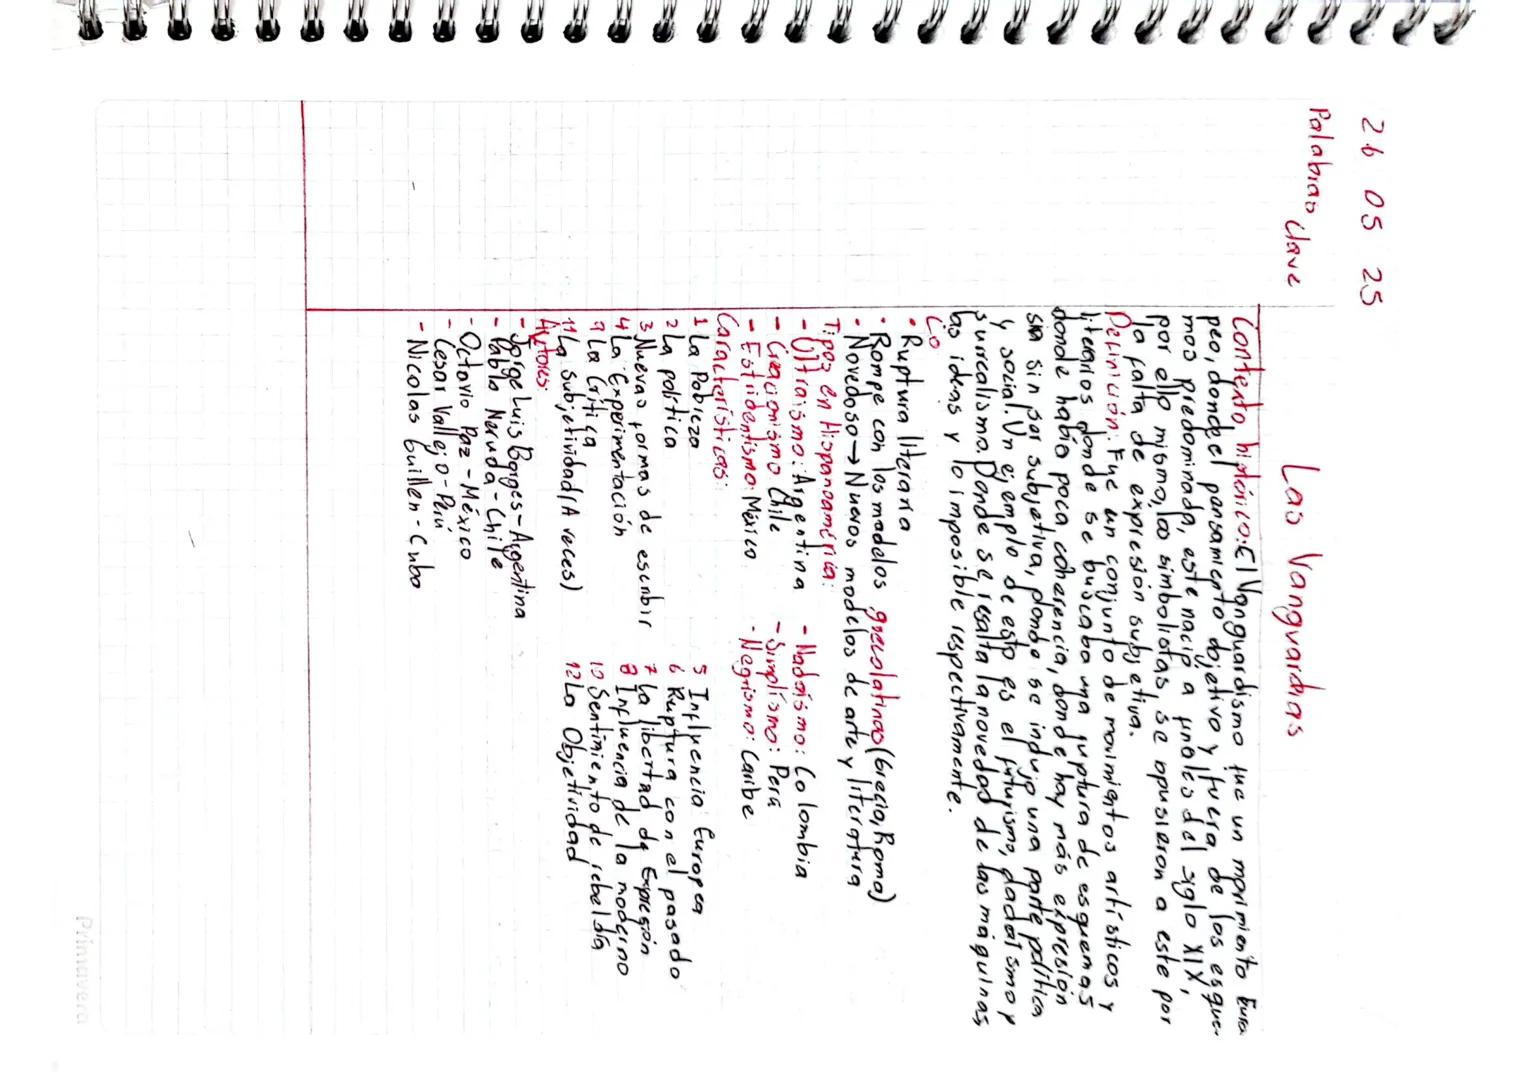 26 05 25
Palabras clave
Las Vanguardias
Contexto histórico: El Vanguardismo fue un movimiento Euro
peo, donde el pensamiento objetivo y fuera de los esque-
mas predominada, este nació a finales del siglo XIX,
por ello mismo, los simbolistas, se opusieron a este por
la falta de expresión subjetiva.
Definición: Fue un conjunto de movimientos artísticos y
literarios donde se buscaba una ruptura de esquemas
donde había poca coherencia, donde hay más expresión
sin ser subjetiva, donde se indujo una parte política
y social. Un ejemplo de esto es el futurismo, dadaísmo y
surrealismo. Donde se resalta la novedad de las máquinas
las ideas y lo imposible respectivamente.
• Ruptura literaria
• Rompe con los modelos grecolatinos (Grecia, Roma)
• Novedoso → Nuevos modelos de arte y literatura
Tipos en Hispanoamérica:
- Ultraísmo: Argentina - Nadaísmo: Colombia
- Creacionismo Chile - Simplismo: Perú
- Estridentismo: México - Negrismo: Caribe
Características:
1 La Pobreza 5 Influencia Europea
2 La política 6 Ruptura con el pasado
3 Nuevas formas de escribir 7 La libertad de Expresión
4 La Experimentación 8 Influencia de lo moderno
9 La Crítica 10 Sentimiento de rebeldía
11 La Subjetividad (A veces) 12 La Objetividad
Autores:
- Jorge Luis Borges - Argentina
- Pablo Neruda - Chile
- Octavio Paz - México
- Cesar Vallejo - Perú
- Nicolas Guillen - Cuba
Primavera